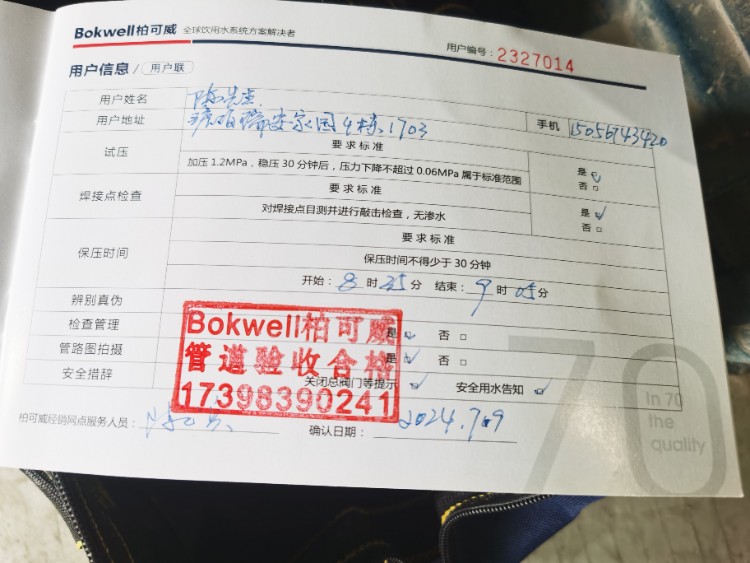 Bokwell柏可威 全球饮用水系统方案解决者
用户编号：2327014
用户信息/用户联
用户姓名 陈先生
用户地址 瑞安家园4栋1703 手机 15056743420
试压 要求标准
加压1.2MPa，稳压30分钟后，压力下降不超过0.06MPa属于标准范围 是 ✓ 否 □
焊接点检查 要求标准
对焊接点目测并进行敲击检查，无渗水 是 ✓ 否 □
保压时间 要求标准
保压时间不得少于30分钟
开始：8时35分 结束：9时05分
辨别真伪
检查管理 是 ✓ 否 □
管路图拍摄 是 ✓ 否 □
安全措辞 关闭总阀门等提示 ✓ 安全用水告知 ✓
Bokwell柏可威
管道验收合格
17398390241
柏可威经销网点服务人员：
确认日期：2024.7.09
70
In 70
the
quality